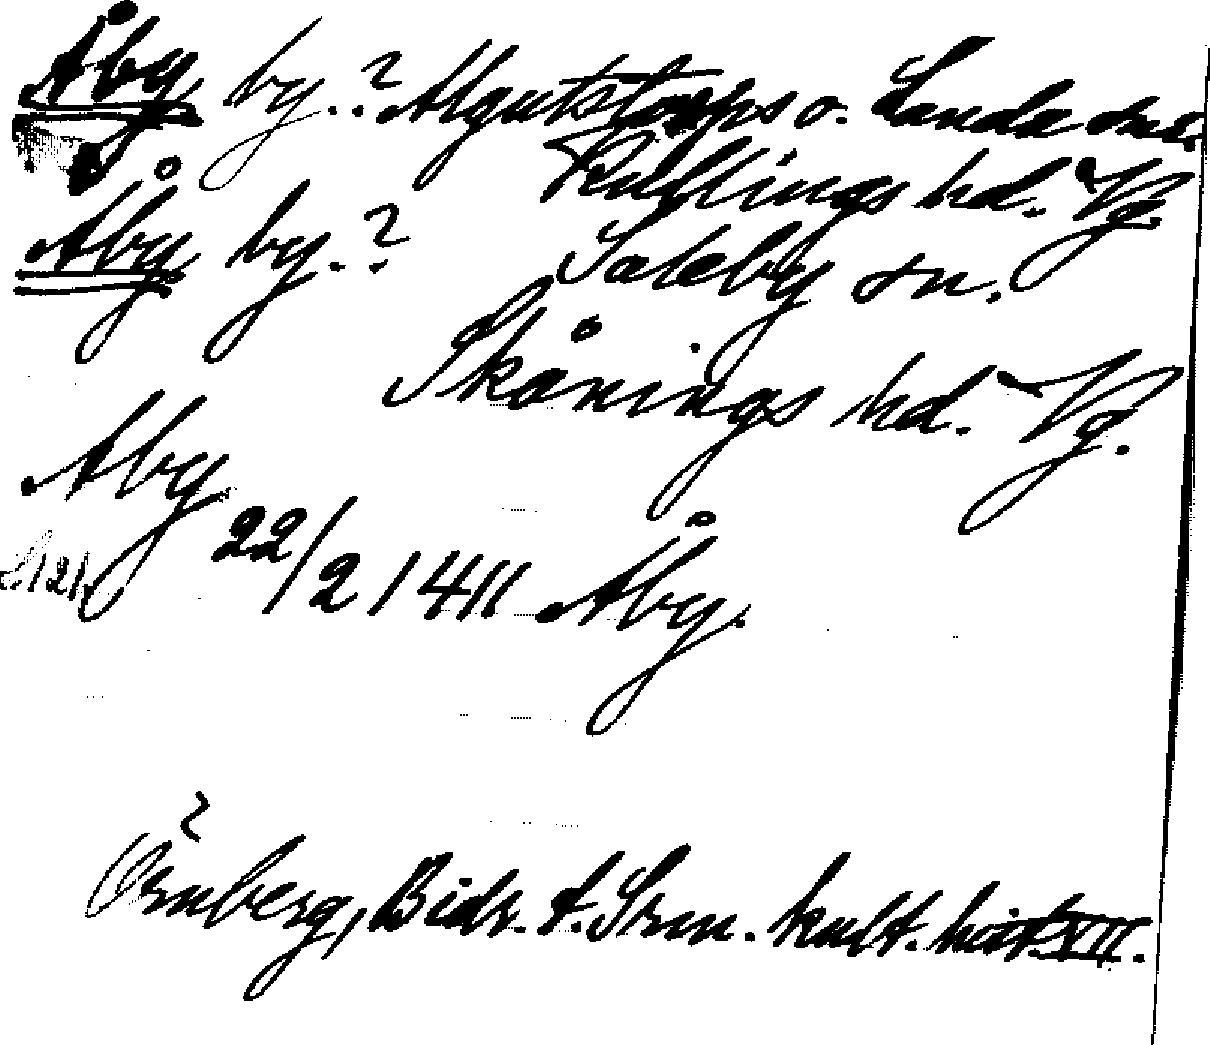 Åby by.? Algutstorps o. Landa snr.
Kullings hd. Vg.
Åby by.? Saleby sn.
Skånings hd. Vg.
Aby
22/2 1411 Åby.
Örnberg, Bidr. t. Srm. kult. hist. XII.